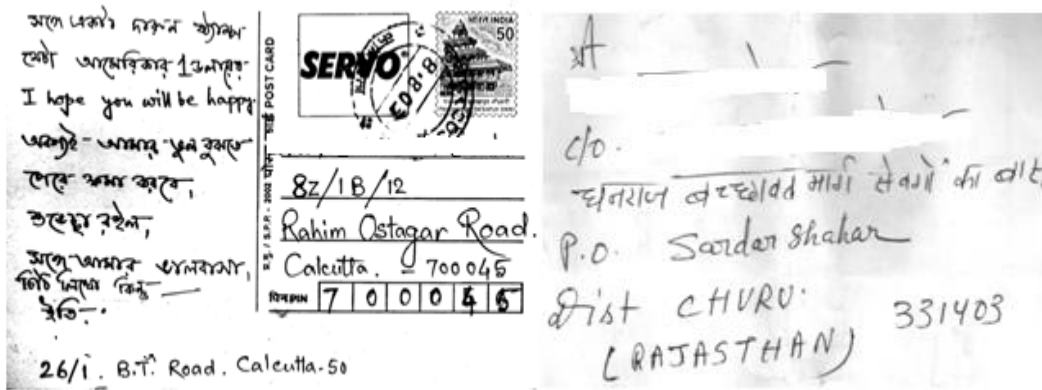 সঙ্গে একটা দারুন স্ট্যাম্প
সেটা আমেরিকার 1 ডলারের
I hope you will be happy
অবশ্যই - আমার ভুল বুঝতে
পেরে ক্ষমা করবে,
শুভেচ্ছা রইল,
সঙ্গে আমার ভালবাসা,
চিঠি লিখো কিন্তু —
ইতি -
26/i. B.T. Road. Calcutta-50
POST CARD
SERVO
भारत INDIA
50
8Z/1B/12
Rahim Ostagar Road.
Calcutta. - 700045
पिन PIN 7 0 0 0 4 5
C/O.
धनराज बच्छावत मार्ग सेवगों का बास
P.O. Sardar Shahar
Dist CHURU.
(RAJASTHAN) 331403